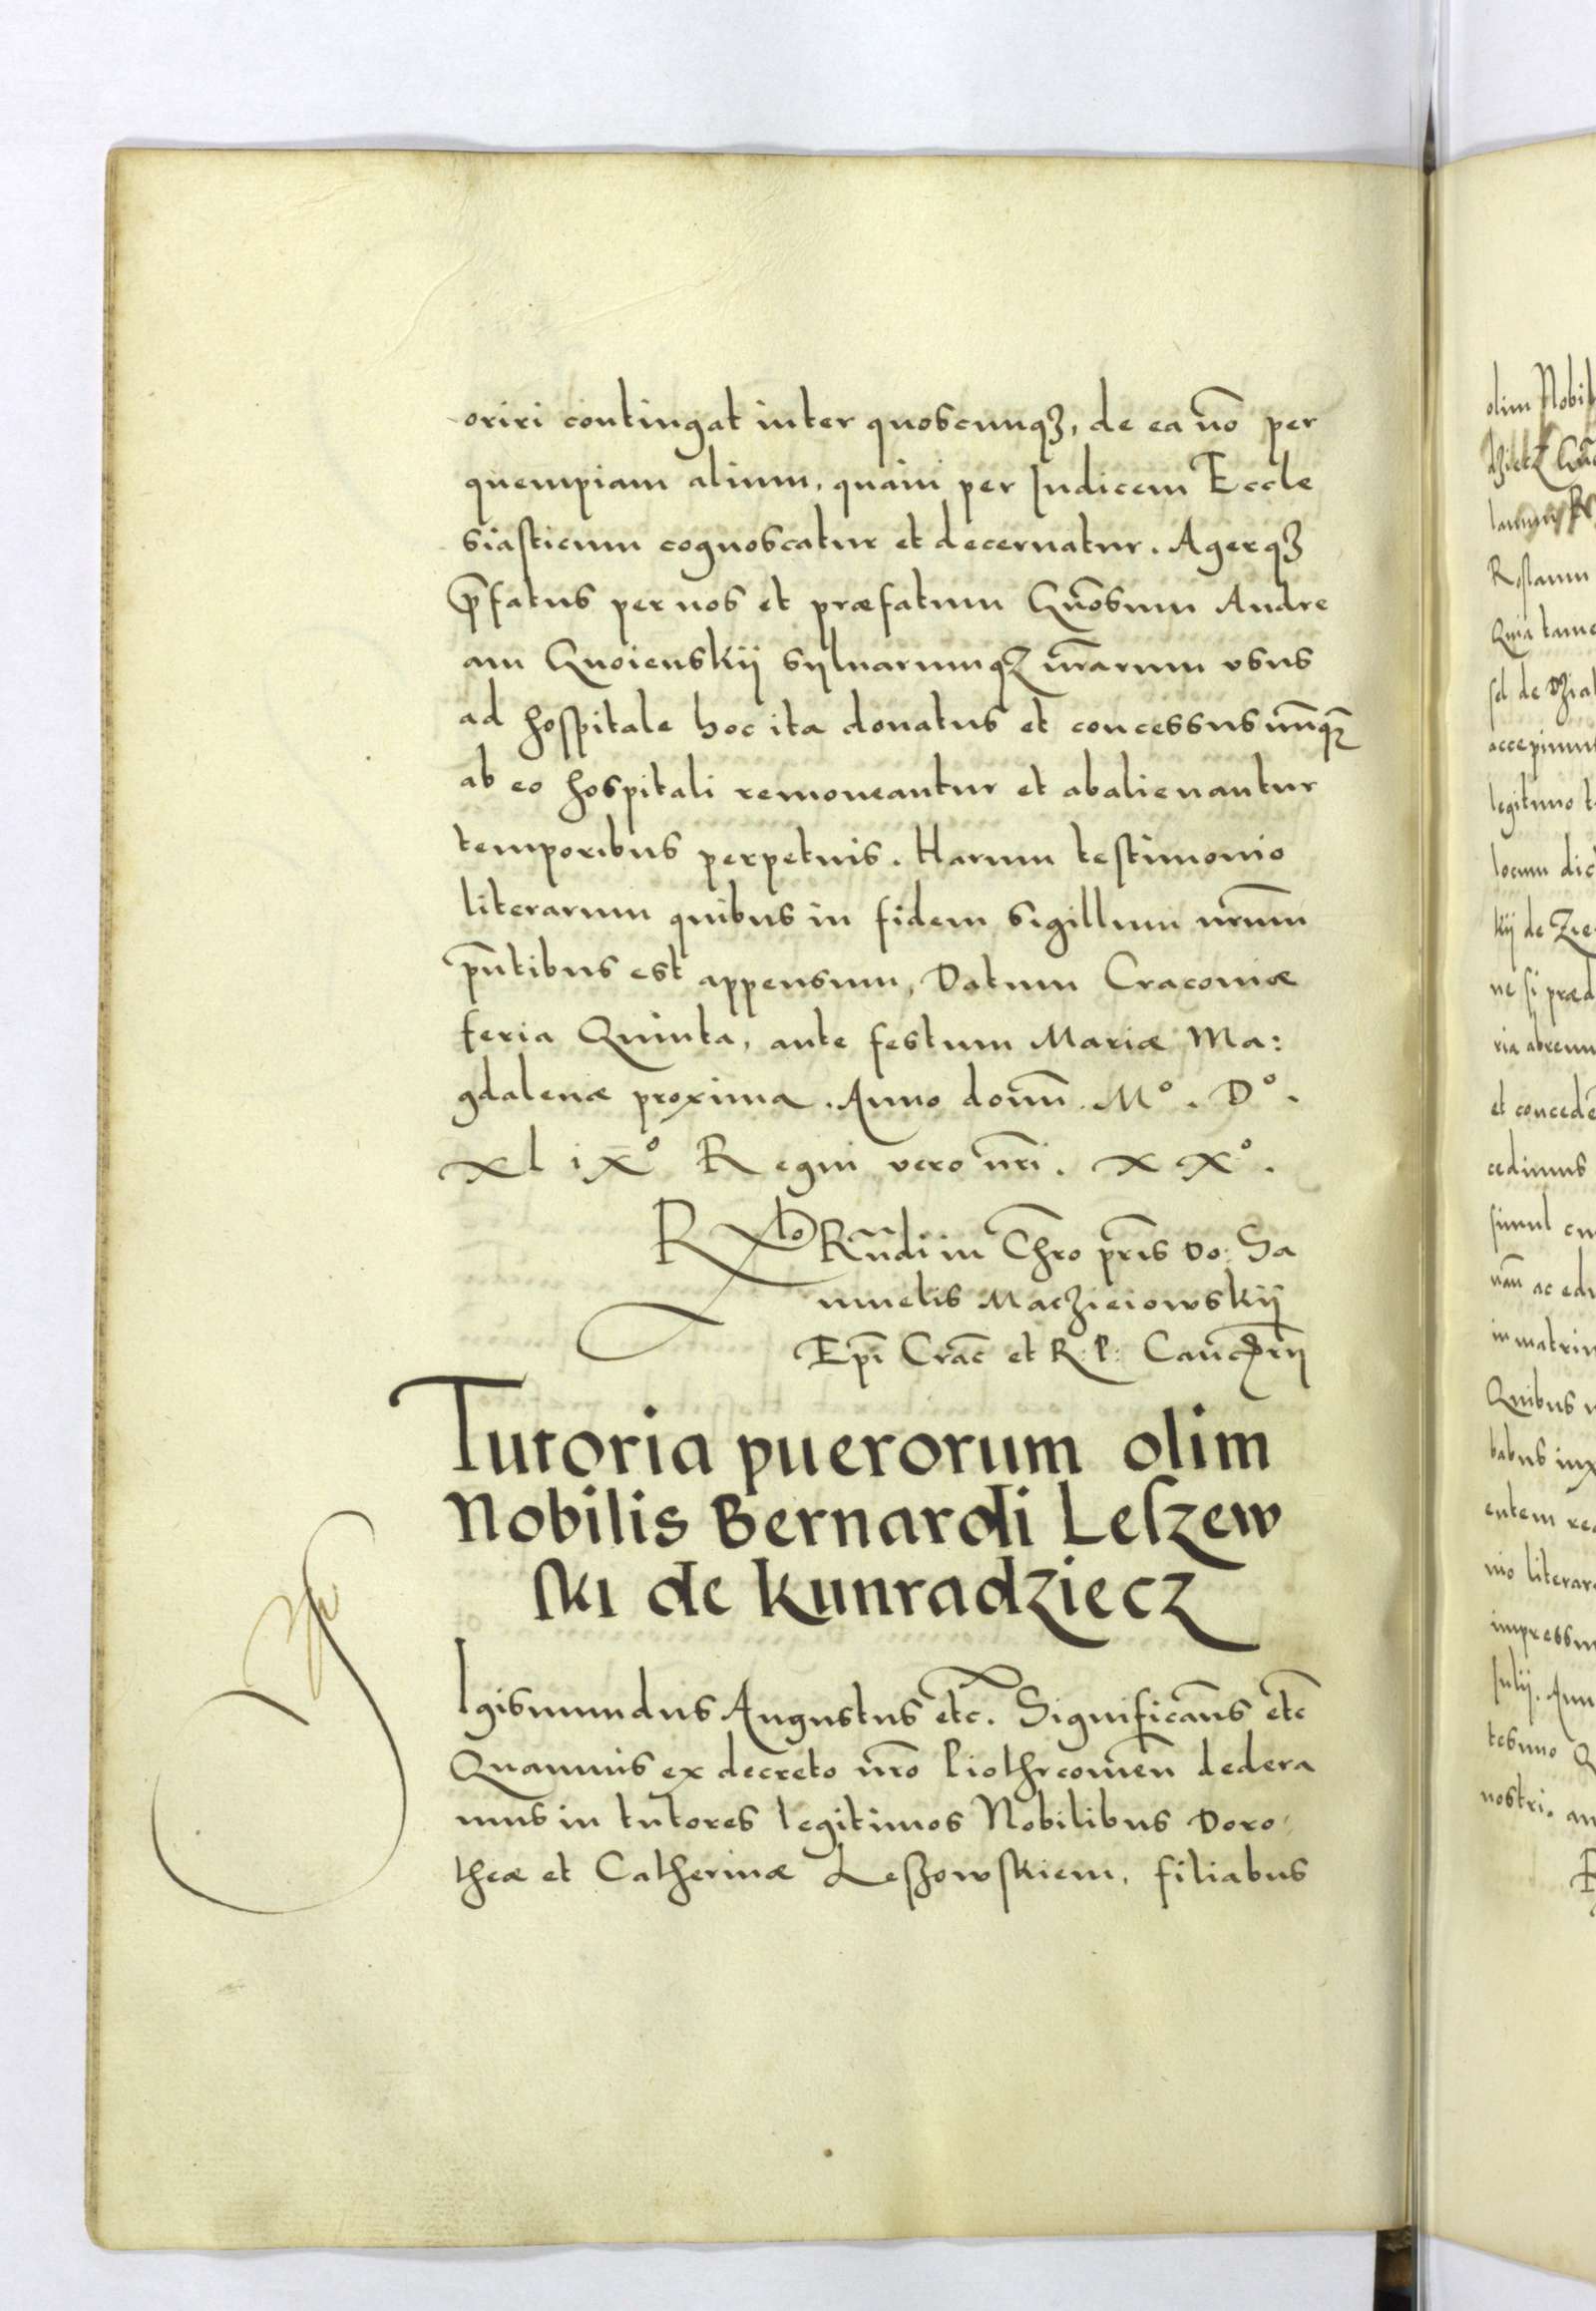 oriri contingat inter quoscunqꝫ, de ea no᷈ per
quempiam alium, quam per Iudicem Eccle
siasticum cognoscatur et decernatur. Agerqꝫ
p̄fatus per nos et præfatum Gn̄osum Andre
am Gnoienskij syluarumqꝫ nr̄arum vsus
ad hospitale hoc ita donatus et concessus nūnqꝫ
ab eo hospitali remoueantur et abalienantur
temporibus perpetuis. Harum testimonio
literarum quibus in fidem sigillum nr̄um
pn̄tibus est appensum, Datum Cracouiæ
feria Quinta, ante festum Mariæ Ma:
gdalenæ proxima. Anno domi᷈n. Mº. Dº.
xl ixº Regni vero nr̄i. xxº.
Rlo Rn̄di in Chr̄o pr̄is Do: Sa
muelis Maczieiowskij
Ep̄i Crac̄ et R: P: Can̄c
Tutoria puerorum olim
Nobilis Bernardi Leſzew
ſki de Kunradziecz
Igismundus Augustus etc̄. Significan̄s etc̄
Quamuis ex decreto nr̄o Piothrcouien̄ dedera
mus in tutores legitimos Nobilibus Doro
theæ et Catherinæ Leſzowſkiem, filiabus
olim Nobil
lanum
Roſtanm
Quia tame
ſd de Dzia
accepimus
legitimo t
locum dic
kij de Zie
ne ſi præd
ria abrenu
et concede
cedimus
simul cu
nam ac edu
in matrim
Quibus
babus iux
entem re
nio literar
impressu
Iulij. Ann
tesimo Q
nostri. an